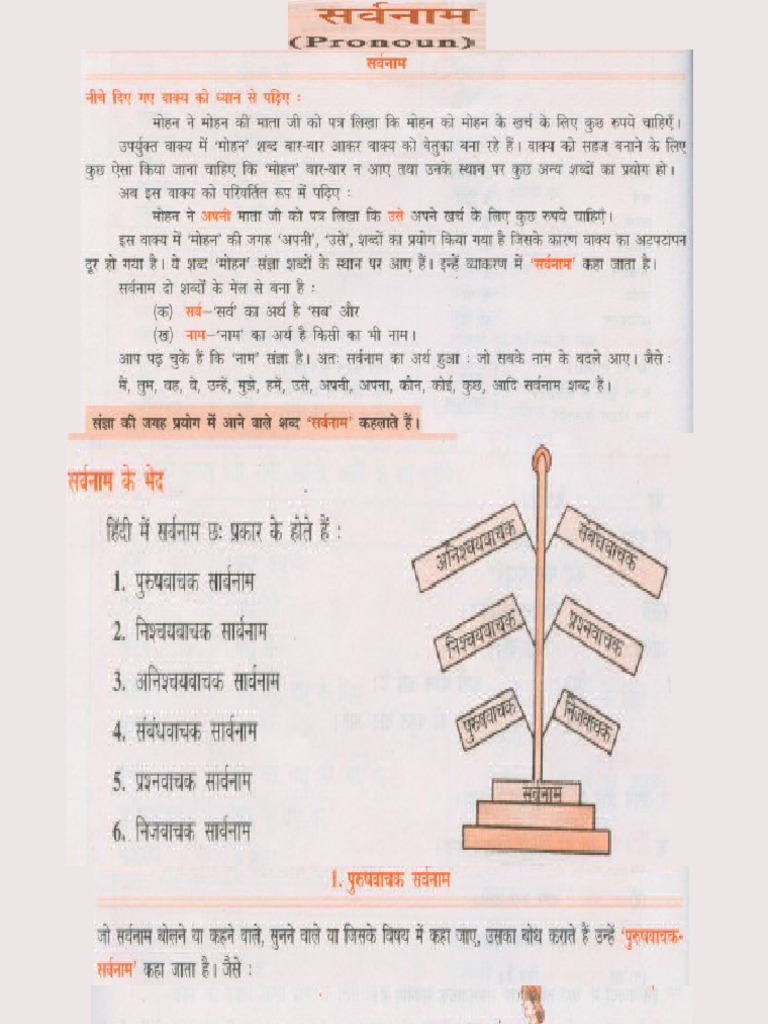 सर्वनाम
(Pronoun)
सर्वनाम
नीचे दिए गए वाक्य को ध्यान से पढ़िए :
मोहन ने मोहन की माता जी को पत्र लिखा कि मोहन को मोहन के खर्च के लिए कुछ रुपयें चाहिएँ।
उपर्युक्त वाक्य में 'मोहन' शब्द बार-बार आकर वाक्य को बेतुका बना रहे हैं। वाक्य को सहज बनाने के लिए
कुछ ऐसा किया जाना चाहिए कि 'मोहन' बार-बार न आए तथा उनके स्थान पर कुछ अन्य शब्दों का प्रयोग हो।
अब इस वाक्य को परिवर्तित रूप में पढ़िए :
मोहन ने अपनी माता जी को पत्र लिखा कि उसे अपने खर्च के लिए कुछ रुपये चाहिएँ।
इस वाक्य में 'मोहन' की जगह 'अपनी', 'उसे', शब्दों का प्रयोग किया गया है जिसके कारण वाक्य का अटपटापन
दूर हो गया है। ये शब्द 'मोहन' संज्ञा शब्दों के स्थान पर आए हैं। इन्हें व्याकरण में 'सर्वनाम' कहा जाता है।
सर्वनाम दो शब्दों के मेल से बना है :
(क) सर्व–'सर्व' का अर्थ है 'सब' और
(ख) नाम–'नाम' का अर्थ है किसी का भी नाम।
आप पढ़ चुके हैं कि 'नाम' संज्ञा है। अतः सर्वनाम का अर्थ हुआ : जो सबके नाम के बदले आए। जैसे :
मैं, तुम, वह, वे, उन्हें, मुझे, हमें, उसे, अपनी, अपना, कौन, कोई, कुछ, आदि सर्वनाम शब्द हैं।
संज्ञा की जगह प्रयोग में आने वाले शब्द 'सर्वनाम' कहलाते हैं।
सर्वनाम के भेद
हिंदी में सर्वनाम छः प्रकार के होते हैं :
1. पुरुषवाचक सार्वनाम
2. निश्चयवाचक सार्वनाम
3. अनिश्चयवाचक सार्वनाम
4. संबंधवाचक सार्वनाम
5. प्रश्नवाचक सार्वनाम
6. निजवाचक सार्वनाम
अनिश्चयवाचक
संबंधवाचक
निश्चयवाचक
प्रश्नवाचक
पुरुषवाचक
निजवाचक
सर्वनाम
1. पुरुषवाचक सर्वनाम
जो सर्वनाम बोलने या कहने वाले, सुनने वाले या जिसके विषय में कहा जाए, उसका बोध कराते हैं उन्हें 'पुरुषवाचक-
सर्वनाम' कहा जाता है। जैसे :